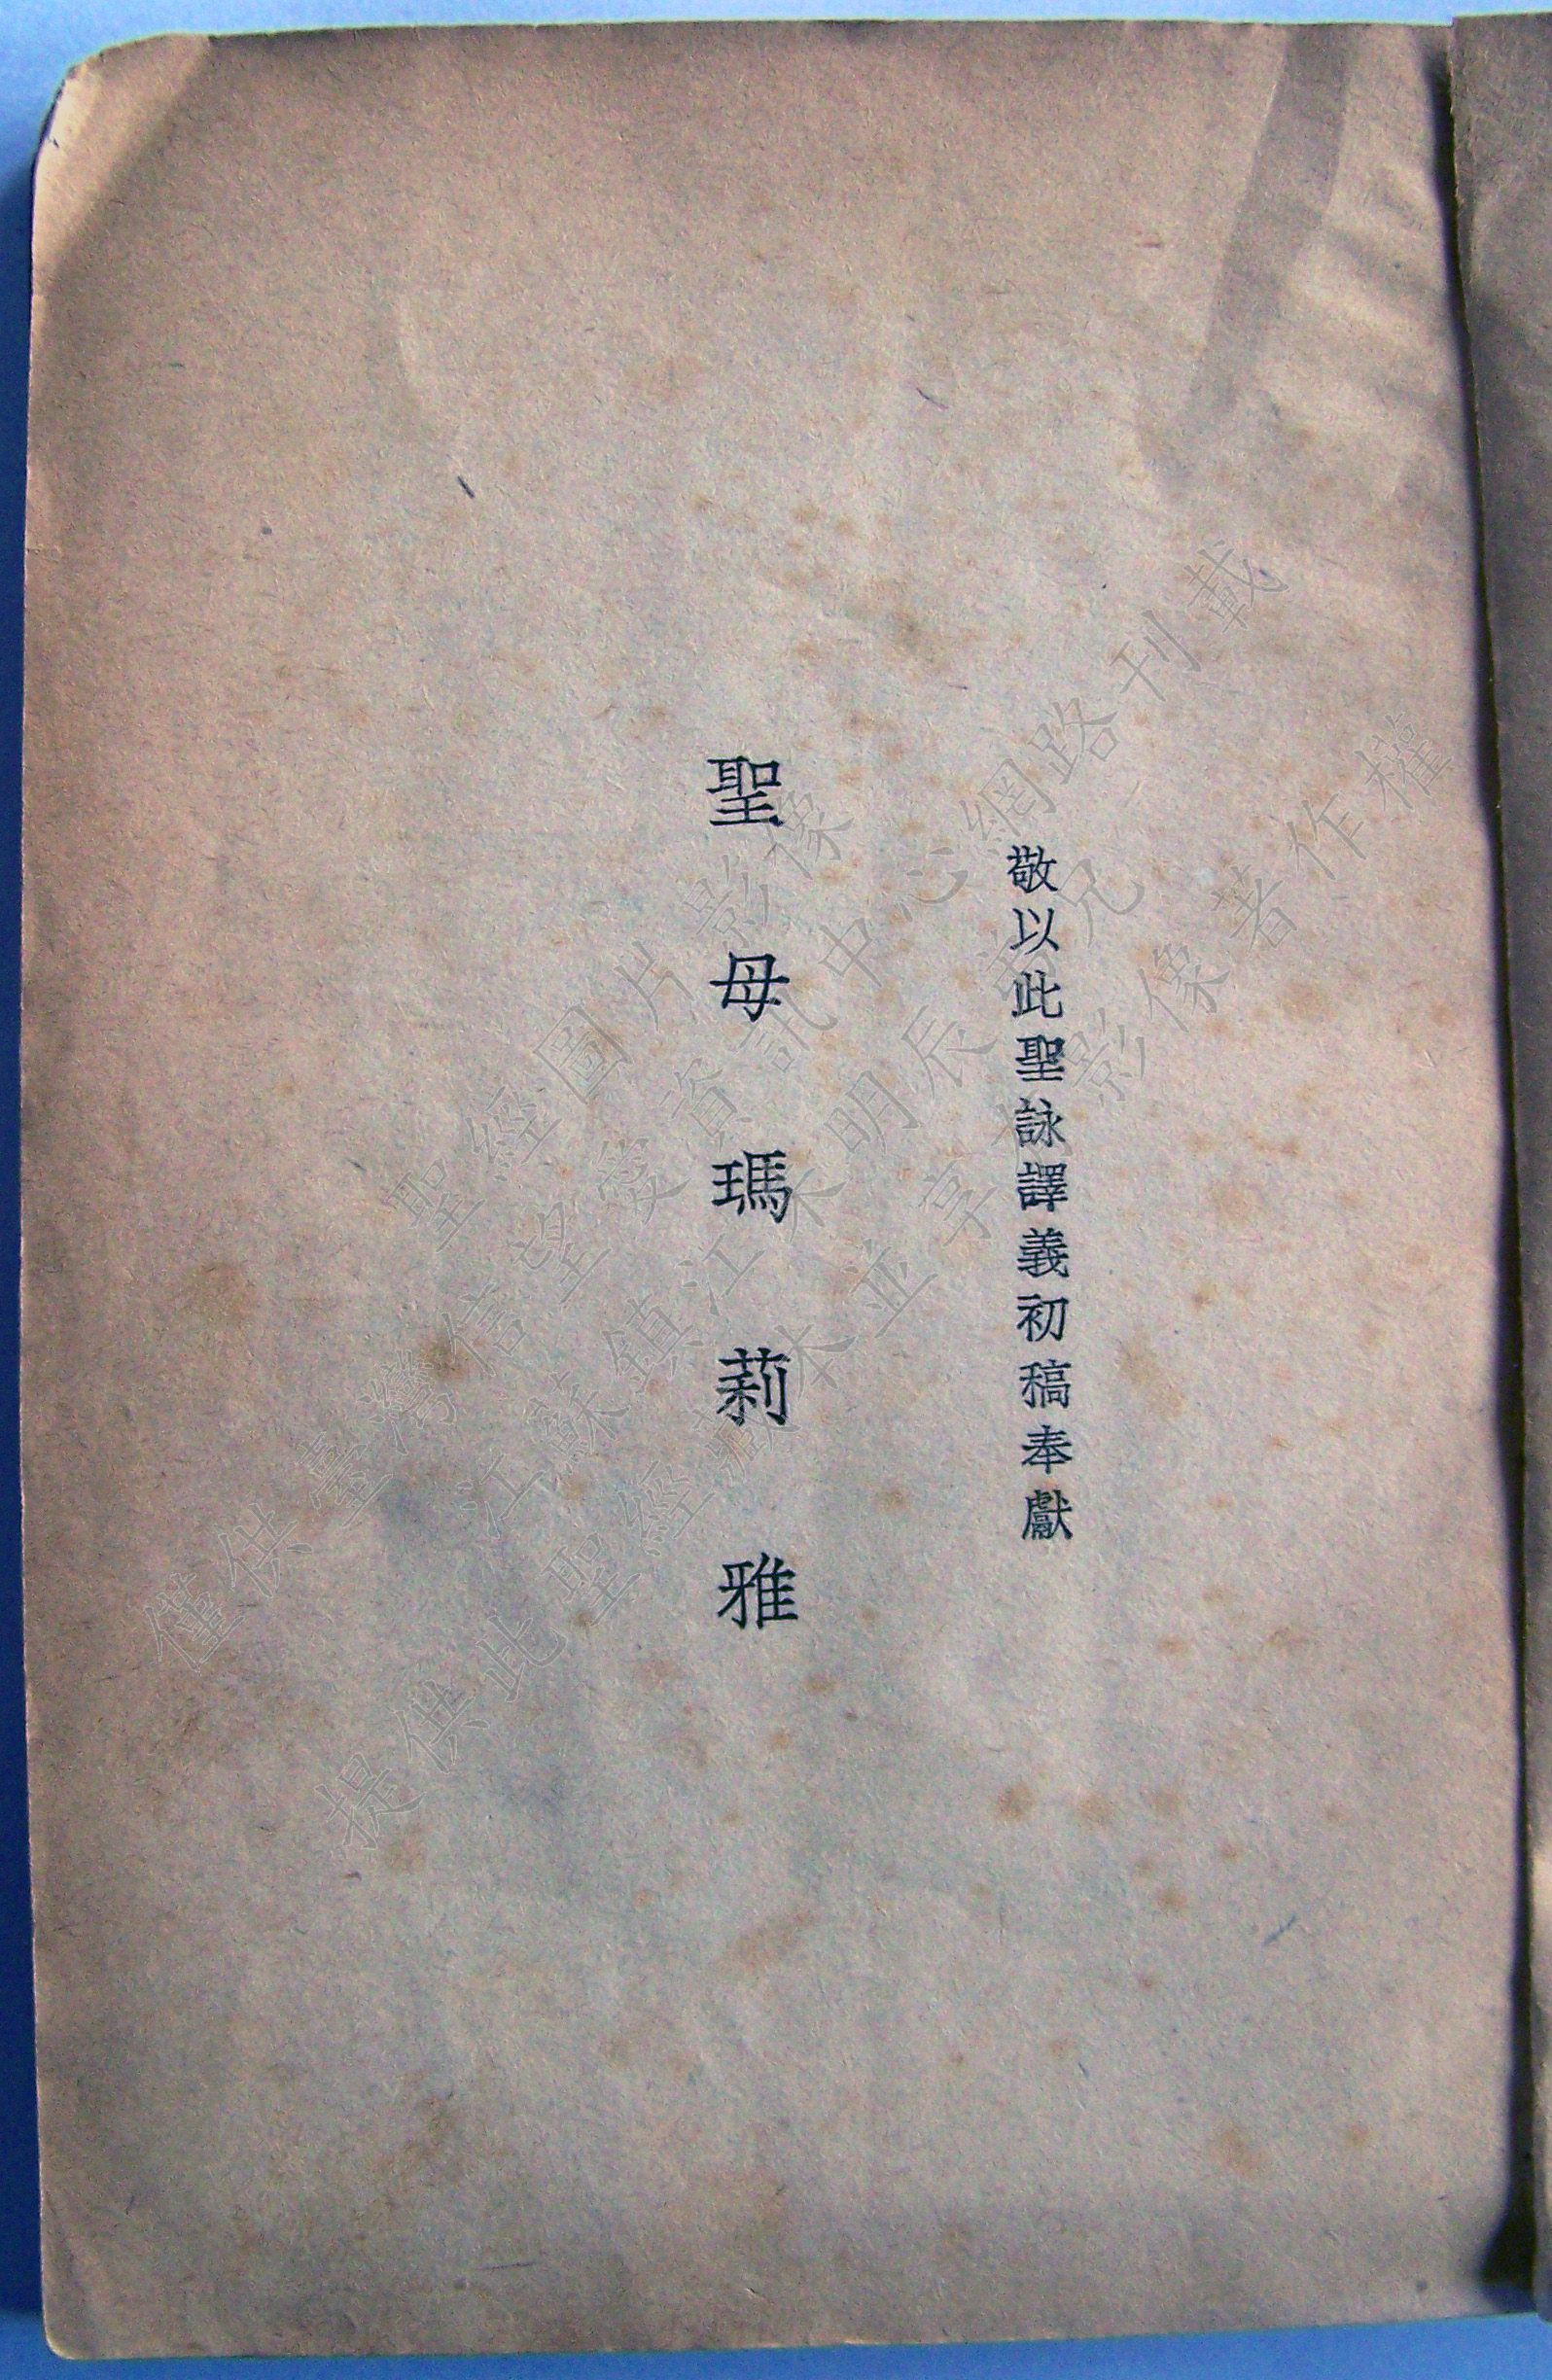 敬以此聖詠譯義初稿奉獻
聖母瑪莉雅
聖經圖片影像
僅供臺灣信望愛資訊中心網路刊載
提供此聖經藏本並享有影像著作權